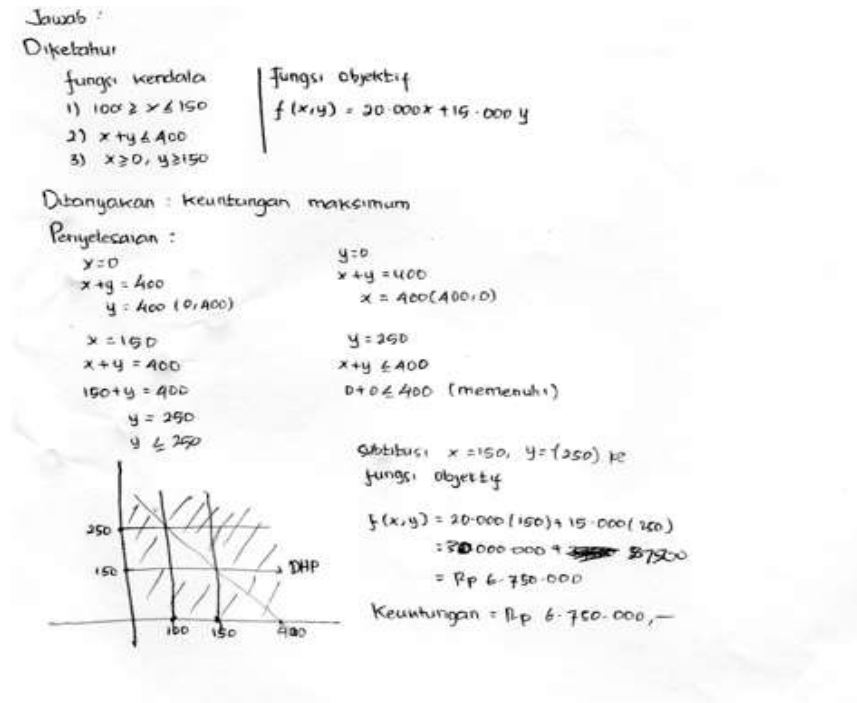 Jawab :
Diketahui
fungsi kendala
1) 100 ≥ x ≤ 150
2) x + y ≤ 400
3) x ≥ 0, y ≥ 150
fungsi objektif
f (x,y) = 20.000x + 15.000 y
Ditanyakan : keuntungan maksimum
Penyelesaian :
x = 0
x + y = 400
y = 400 (0,400)
y = 0
x + y = 400
x = 400 (400,0)
x = 150
x + y = 400
150 + y = 400
y = 250
y ≤ 250
y = 250
x + y ≤ 400
0 + 0 ≤ 400 (memenuhi)
subtitusi x = 150, y = (250) ke
fungsi objektif
f (x,y) = 20.000 (150) + 15.000 (250)
= 3.000.000 +
= Rp 6.750.000
Keuntungan = Rp 6.750.000,—
250
150
DHP
100 150 400